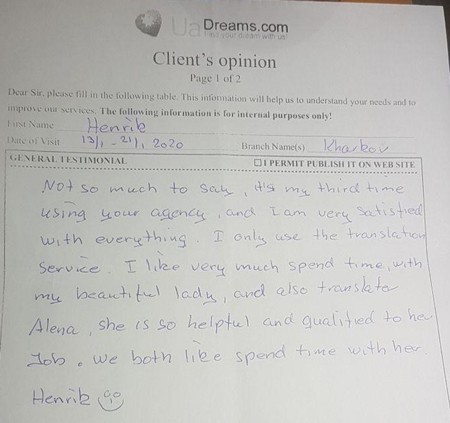 UaDreams.com
Find your dream with us
Client's opinion
Page 1 of 2
Dear Sir, please fill in the following table. This information will help us to understand your needs and to
improve our services. The following information is for internal purposes only!
First Name Henrik
Date of Visit 13/1 - 21/1 2020 Branch Name(s) Kharkov
GENERAL TESTIMONIAL ☐I PERMIT PUBLISH IT ON WEB SITE
Not so much to say, it's my third time
using your agency, and I am very satisfied
with everything. I only use the translation
service. I like very much spend time, with
my beautiful lady, and also translator
Alena, she is so helpful and qualified to her
Job. We both like spend time with her.
Henrik